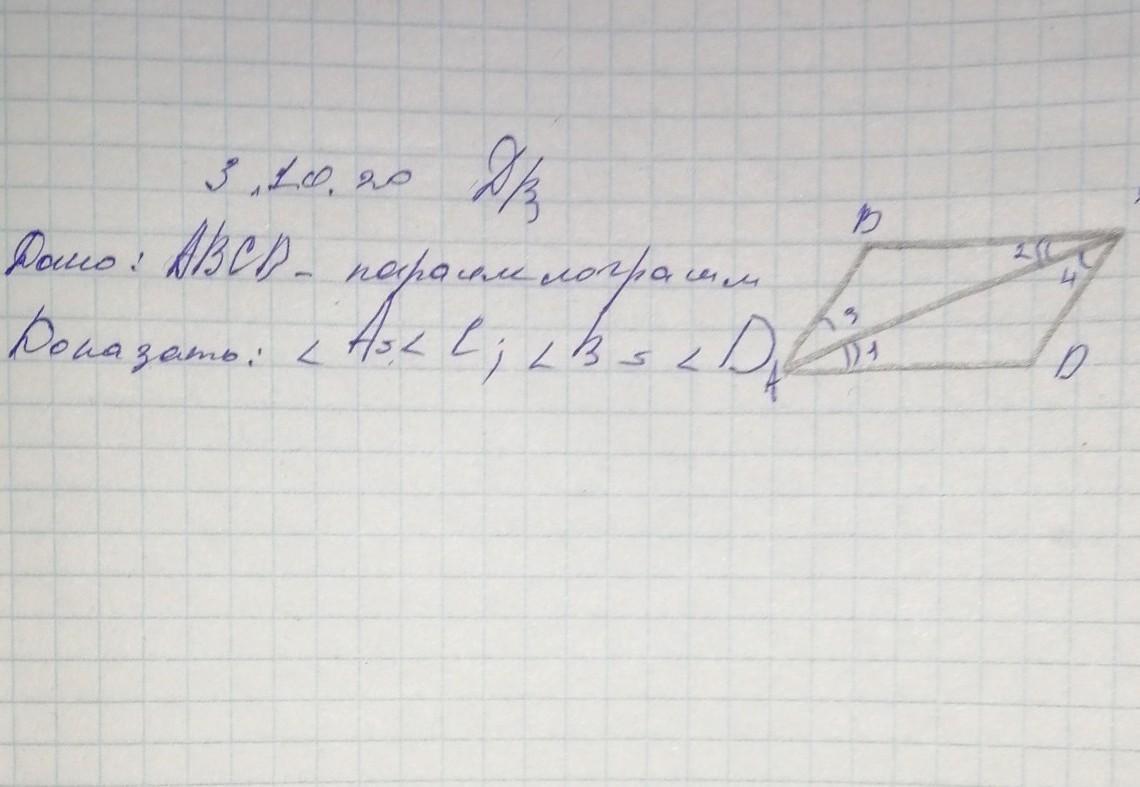 3.10.20 Д/З
Дано: ABCD - параллелограмм
Доказать: < A = < C; < B = < D
B
2
4
3
1
A
D